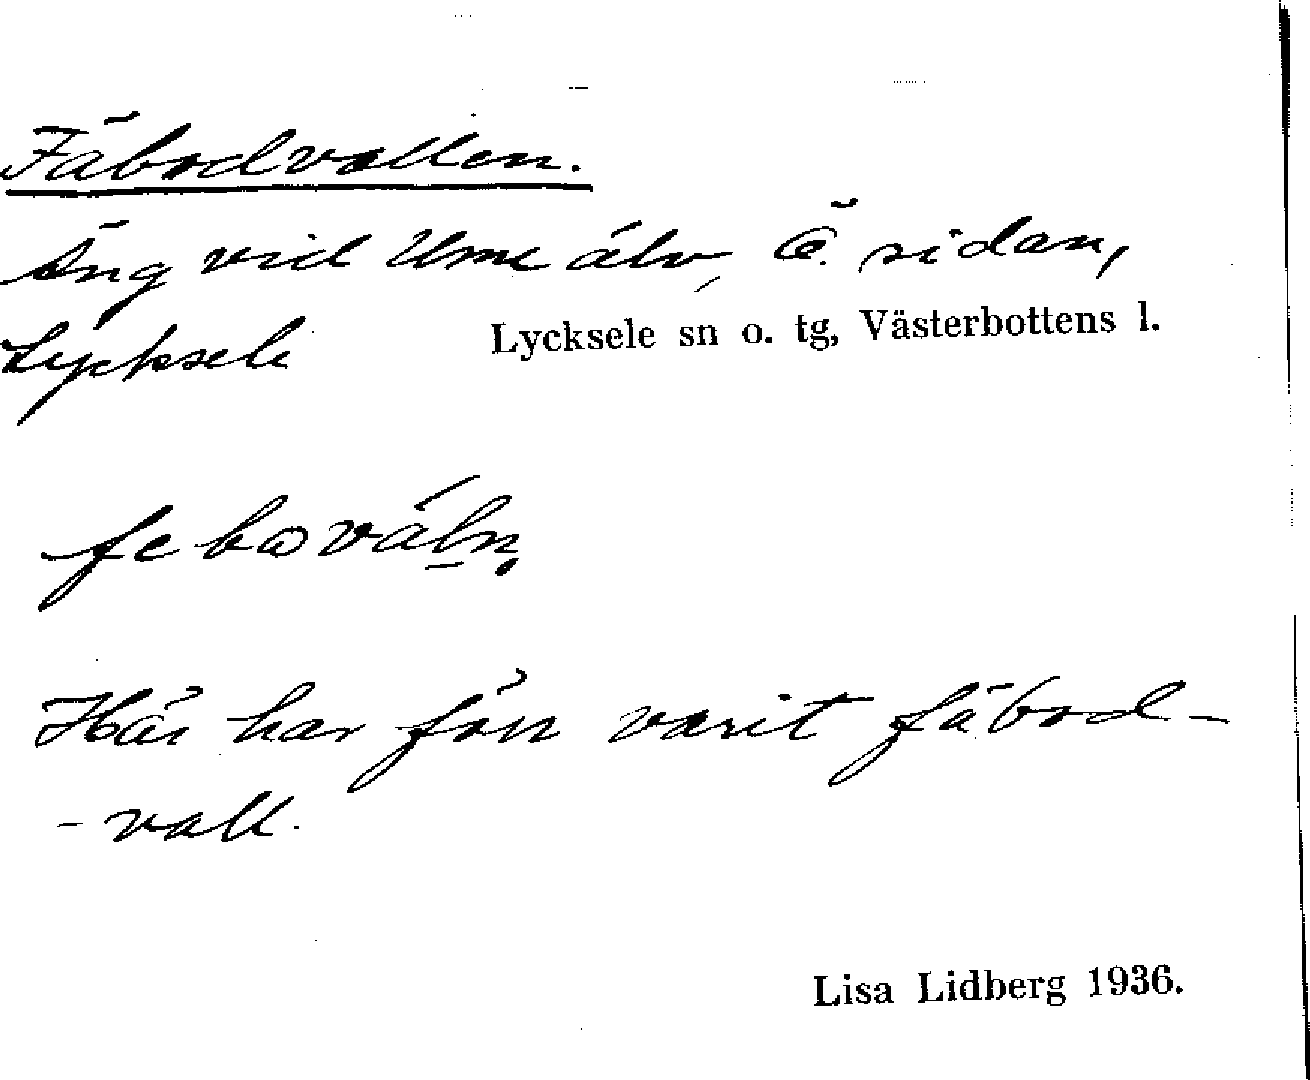 Fäbodvallen.
Äng vid Ume älv, Ö. sidan,
Lycksele Lycksele sn o. tg, Västerbottens l.
febovàln
Här har förr varit fäbod-
- vall.
Lisa Lidberg 1936.